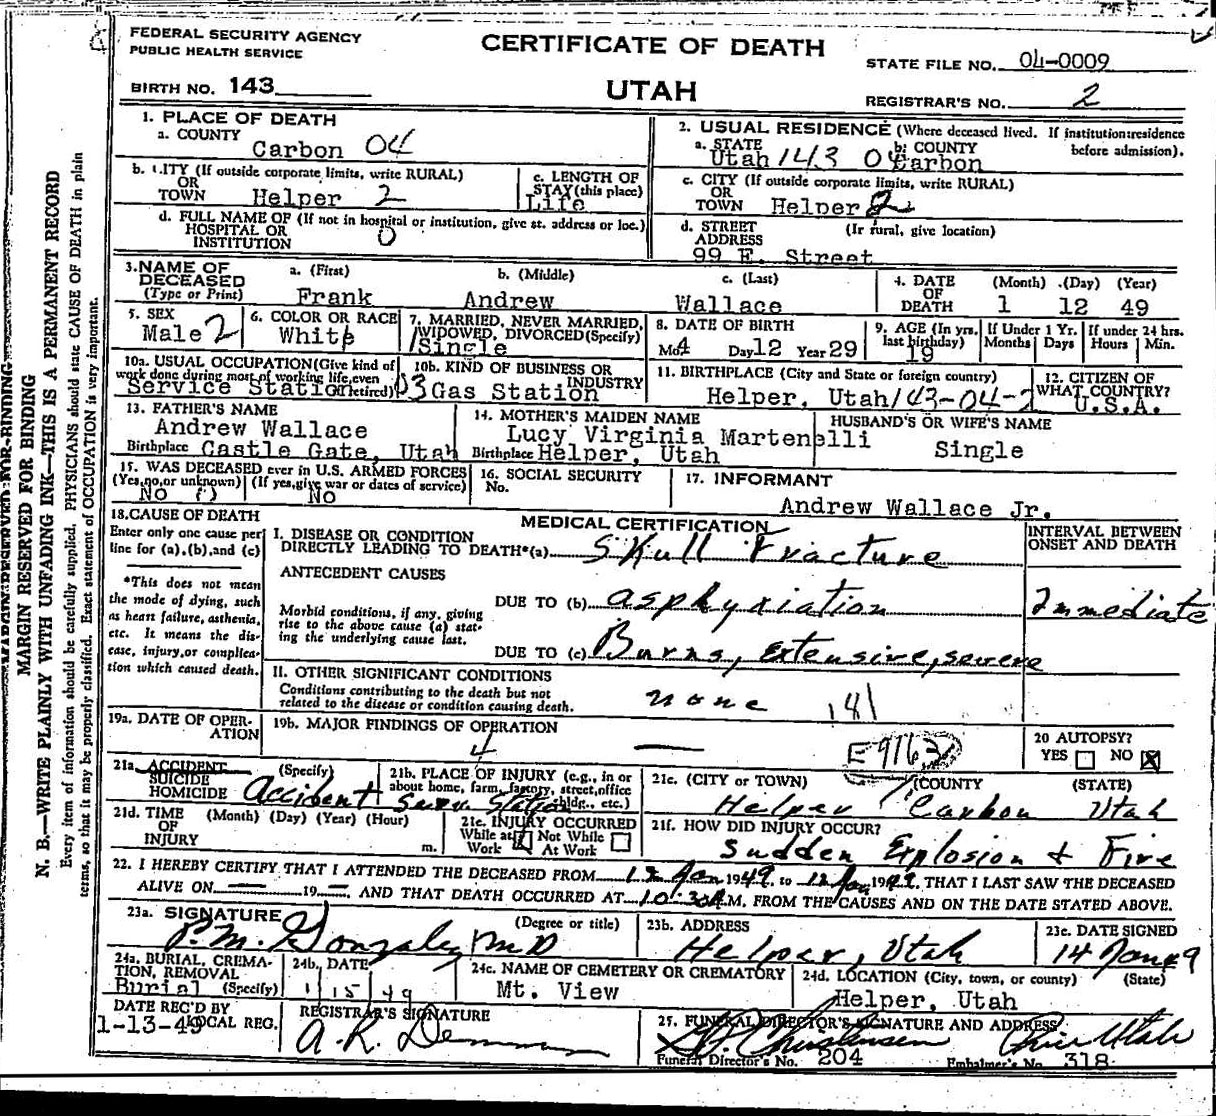 FEDERAL SECURITY AGENCY
PUBLIC HEALTH SERVICE
CERTIFICATE OF DEATH
STATE FILE NO. 04-0009
BIRTH NO. 143
UTAH
REGISTRAR'S NO. 2
1. PLACE OF DEATH
a. COUNTY
Carbon 04
2. USUAL RESIDENCE (Where deceased lived. If institution: residence before admission).
a. STATE b. COUNTY
Utah 143 04 Carbon
b. CITY (If outside corporate limits, write RURAL)
OR
TOWN Helper 2
c. LENGTH OF
STAY (this place)
Life
c. CITY (If outside corporate limits, write RURAL)
OR
TOWN Helper 2
d. FULL NAME OF (If not in hospital or institution, give st. address or loc.)
HOSPITAL OR
INSTITUTION 0
d. STREET (If rural, give location)
ADDRESS
99 E. Street
3. NAME OF DECEASED
(Type or Print)
a. (First) b. (Middle) c. (Last)
Frank Andrew Wallace
4. DATE OF DEATH
(Month) (Day) (Year)
1 12 49
5. SEX
Male 2
6. COLOR OR RACE
White
7. MARRIED, NEVER MARRIED,
WIDOWED, DIVORCED (Specify)
Single
8. DATE OF BIRTH
Mo. 4 Day 12 Year 29
9. AGE (In yrs. last birthday)
19
If Under 1 Yr. Months Days
If under 24 hrs. Hours Min.
10a. USUAL OCCUPATION (Give kind of work done during most of working life, even retired)
Service Station 03
10b. KIND OF BUSINESS OR INDUSTRY
Gas Station
11. BIRTHPLACE (City and State or foreign country)
Helper, Utah 143-04-2
12. CITIZEN OF WHAT COUNTRY?
U.S.A.
13. FATHER'S NAME
Andrew Wallace
Birthplace Castle Gate, Utah
14. MOTHER'S MAIDEN NAME
Lucy Virginia Martenelli
Birthplace Helper, Utah
HUSBAND'S OR WIFE'S NAME
Single
15. WAS DECEASED ever in U.S. ARMED FORCES
(Yes, no, or unknown) (If yes, give war or dates of service)
No 0 No
16. SOCIAL SECURITY
No.
17. INFORMANT
Andrew Wallace Jr.
18. CAUSE OF DEATH
Enter only one cause per
line for (a), (b), and (c)
*This does not mean
the mode of dying, such
as heart failure, asthenia,
etc. It means the dis-
ease, injury, or complica-
tion which caused death.
MEDICAL CERTIFICATION
INTERVAL BETWEEN
ONSET AND DEATH
I. DISEASE OR CONDITION
DIRECTLY LEADING TO DEATH* (a) Skull Fracture
ANTECEDENT CAUSES
Morbid conditions, if any, giving
rise to the above cause (a) stat-
ing the underlying cause last.
DUE TO (b) asphyxiation Immediate
DUE TO (c) Burns, Extensive, severe
II. OTHER SIGNIFICANT CONDITIONS
Conditions contributing to the death but not
related to the disease or condition causing death.
none 181
19a. DATE OF OPER-
ATION
19b. MAJOR FINDINGS OF OPERATION
4 —
E 916
20 AUTOPSY?
YES NO X
21a. ACCIDENT
SUICIDE
HOMICIDE
(Specify)
Accident
21b. PLACE OF INJURY (e.g., in or
about home, farm, factory, street, office
bldg., etc.)
Serv Station
21c. (CITY or TOWN) (COUNTY (STATE)
Helper Carbon Utah
21d. TIME OF INJURY
(Month) (Day) (Year) (Hour)
m.
21e. INJURY OCCURRED
While at Work Not While At Work
21f. HOW DID INJURY OCCUR?
Sudden Explosion & Fire
22. I HEREBY CERTIFY THAT I ATTENDED THE DECEASED FROM 12 Jan 1949 to 12 Jan 1949, THAT I LAST SAW THE DECEASED
ALIVE ON — 19 — AND THAT DEATH OCCURRED AT 10:30 A.M. FROM THE CAUSES AND ON THE DATE STATED ABOVE.
23a. SIGNATURE (Degree or title)
P. M. Gonzaley MD
23b. ADDRESS
Helper, Utah
23c. DATE SIGNED
14 Jan 49
24a. BURIAL, CREMA-
TION, REMOVAL
Burial (Specify)
24b. DATE
1/15/49
24c. NAME OF CEMETERY OR CREMATORY
Mt. View
24d. LOCATION (City, town, or county) (State)
Helper, Utah
DATE REC'D BY
LOCAL REG.
1-13-49
REGISTRAR'S SIGNATURE
A. R. Demman
25. FUNERAL DIRECTOR'S SIGNATURE AND ADDRESS
Christensen Price Utah
Funeral Director's No. 204
Embalmer's No. 318
MARGIN RESERVED FOR BINDING
N. B.—WRITE PLAINLY WITH UNFADING INK—THIS IS A PERMANENT RECORD
Every item of information should be carefully supplied. PHYSICIANS should state CAUSE OF DEATH in plain
terms, so that it may be properly classified. Exact statement of OCCUPATION is very important.